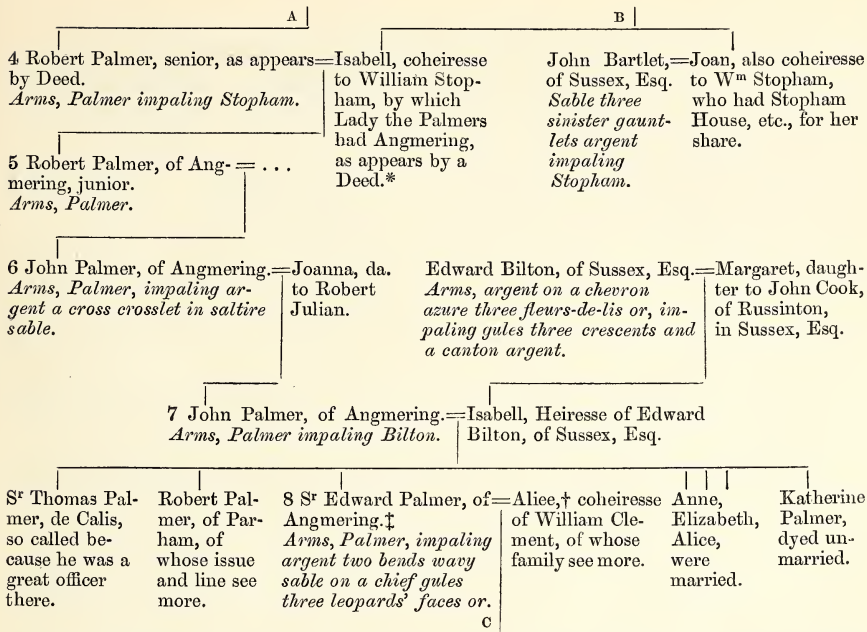 A
B
4 Robert Palmer, senior, as appears=
by Deed.
Arms, Palmer impaling Stopham.
Isabell, coheiresse
to William Stop-
ham, by which
Lady the Palmers
had Angmering,
as appears by a
Deed.*
John Bartlet,=
of Sussex, Esq.
Sable three
sinister gaunt-
lets argent
impaling
Stopham.
Joan, also coheiresse
to Wm Stopham,
who had Stopham
House, etc., for her
share.
5 Robert Palmer, of Ang-= ...
mering, junior.
Arms, Palmer.
6 John Palmer, of Angmering.=
Arms, Palmer, impaling ar-
gent a cross crosslet in saltire
sable.
Joanna, da.
to Robert
Julian.
Edward Bilton, of Sussex, Esq.=
Arms, argent on a chevron
azure three fleurs-de-lis or, im-
paling gules three crescents and
a canton argent.
Margaret, daugh-
ter to John Cook,
of Russinton,
in Sussex, Esq.
7 John Palmer, of Angmering.=
Arms, Palmer impaling Bilton.
Isabell, Heiresse of Edward
Bilton, of Sussex, Esq.
Sr Thomas Pal-
mer, de Calis,
so called be-
cause he was a
great officer
there.
Robert Pal-
mer, of Par-
ham, of
whose issue
and line see
more.
8 Sr Edward Palmer, of=
Angmering.‡
Arms, Palmer, impaling
argent two bends wavy
sable on a chief gules
three leopards' faces or.
Alice,† coheiresse
of William Cle-
ment, of whose
family see more.
Anne,
Elizabeth,
Alice,
were
married.
Katherine
Palmer,
dyed un-
married.
C